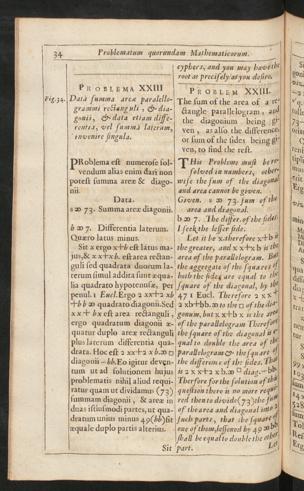 34 Problematum quorundam Mathematicorum.
PROBLEMA XXIII
Fig. 34. Datâ summa areæ parallelo-
grammi rectanguli, & dia-
gonii, & data etiam diffe-
rentia, vel summa laterum,
invenire singula.
PRoblema est numerose sol-
vendum alias enim dari non
potest summa areæ & diago-
nii.
Data.
s ∞ 73. Summa areæ diagonii.
b ∞ 7. Differentia laterum.
Quæro latus minus.
Sit x ergo x+b est latus ma-
jus, & xx+xb. est area rectan-
guli sed quadrata duorum la-
terum simul addita sunt æqua-
lia quadrato hypotenusæ, per
penul. 1 Eucl. Ergo 2 xx+2 xb
+bb ∞ quadrato diagonii. Sed
xx+bx est area rectanguli,
ergo quadratum diagonii æ-
quatur duplo areæ rectanguli
plus laterum differentia qua-
drata. Hoc est 2 xx+2 xb ∞
diagonii -bb. Eo igitur devep-
tum ut ad solutionem hujus
problematis nihil aliud requi-
ratur quam ut dividamus (73)
summam diagonii, & areæ in
duas istiusmodi partes, ut qua-
dratum unius minus 49 (bb) sit
æquale duplo partis alterius.
Sit
cyphers, and you may have the
root as precisely as you desire.
PROBLEM XXIII.
The sum of the area of a re-
ctangle parallelogram, and
the diagonium being gi-
ven, as also the difference,
or sum of the sides being gi-
ven, to find the rest.
THis Probleme must be re-
solved in numbers, other-
wise the sum of the diagonal
and area cannot be given.
Given. s ∞ 73. sum of the
area and diagonal.
b ∞ 7. The differ. of the sides
I seek the lesser side.
Let it be x therefore x+b is
the greater, and xx+xb is the
area of the parallelogram. But
the aggregate of the squares of
both the sides are equal to the
square of the diagonal, by the
47 1 Eucl. Therefore 2 xx+
2 xb+bb. ∞ to the □ of the dia-
gonum, but xx+bx is the area
of the parallelogram Therefore
the square of the diagonal is e-
qual to double the area of the
parallelogram & the square of
the difference of the sides. That
is 2 xx+2 xb. ∞ □ diag. -bb.
Therfore for the solution of this
question there is no more requi-
red then to divide (73) the sum
of the area and diagonal into 2
such parts, that the square of
one of them, lessened by 49 ∞ bb,
shall be equal to double the other
part. Let